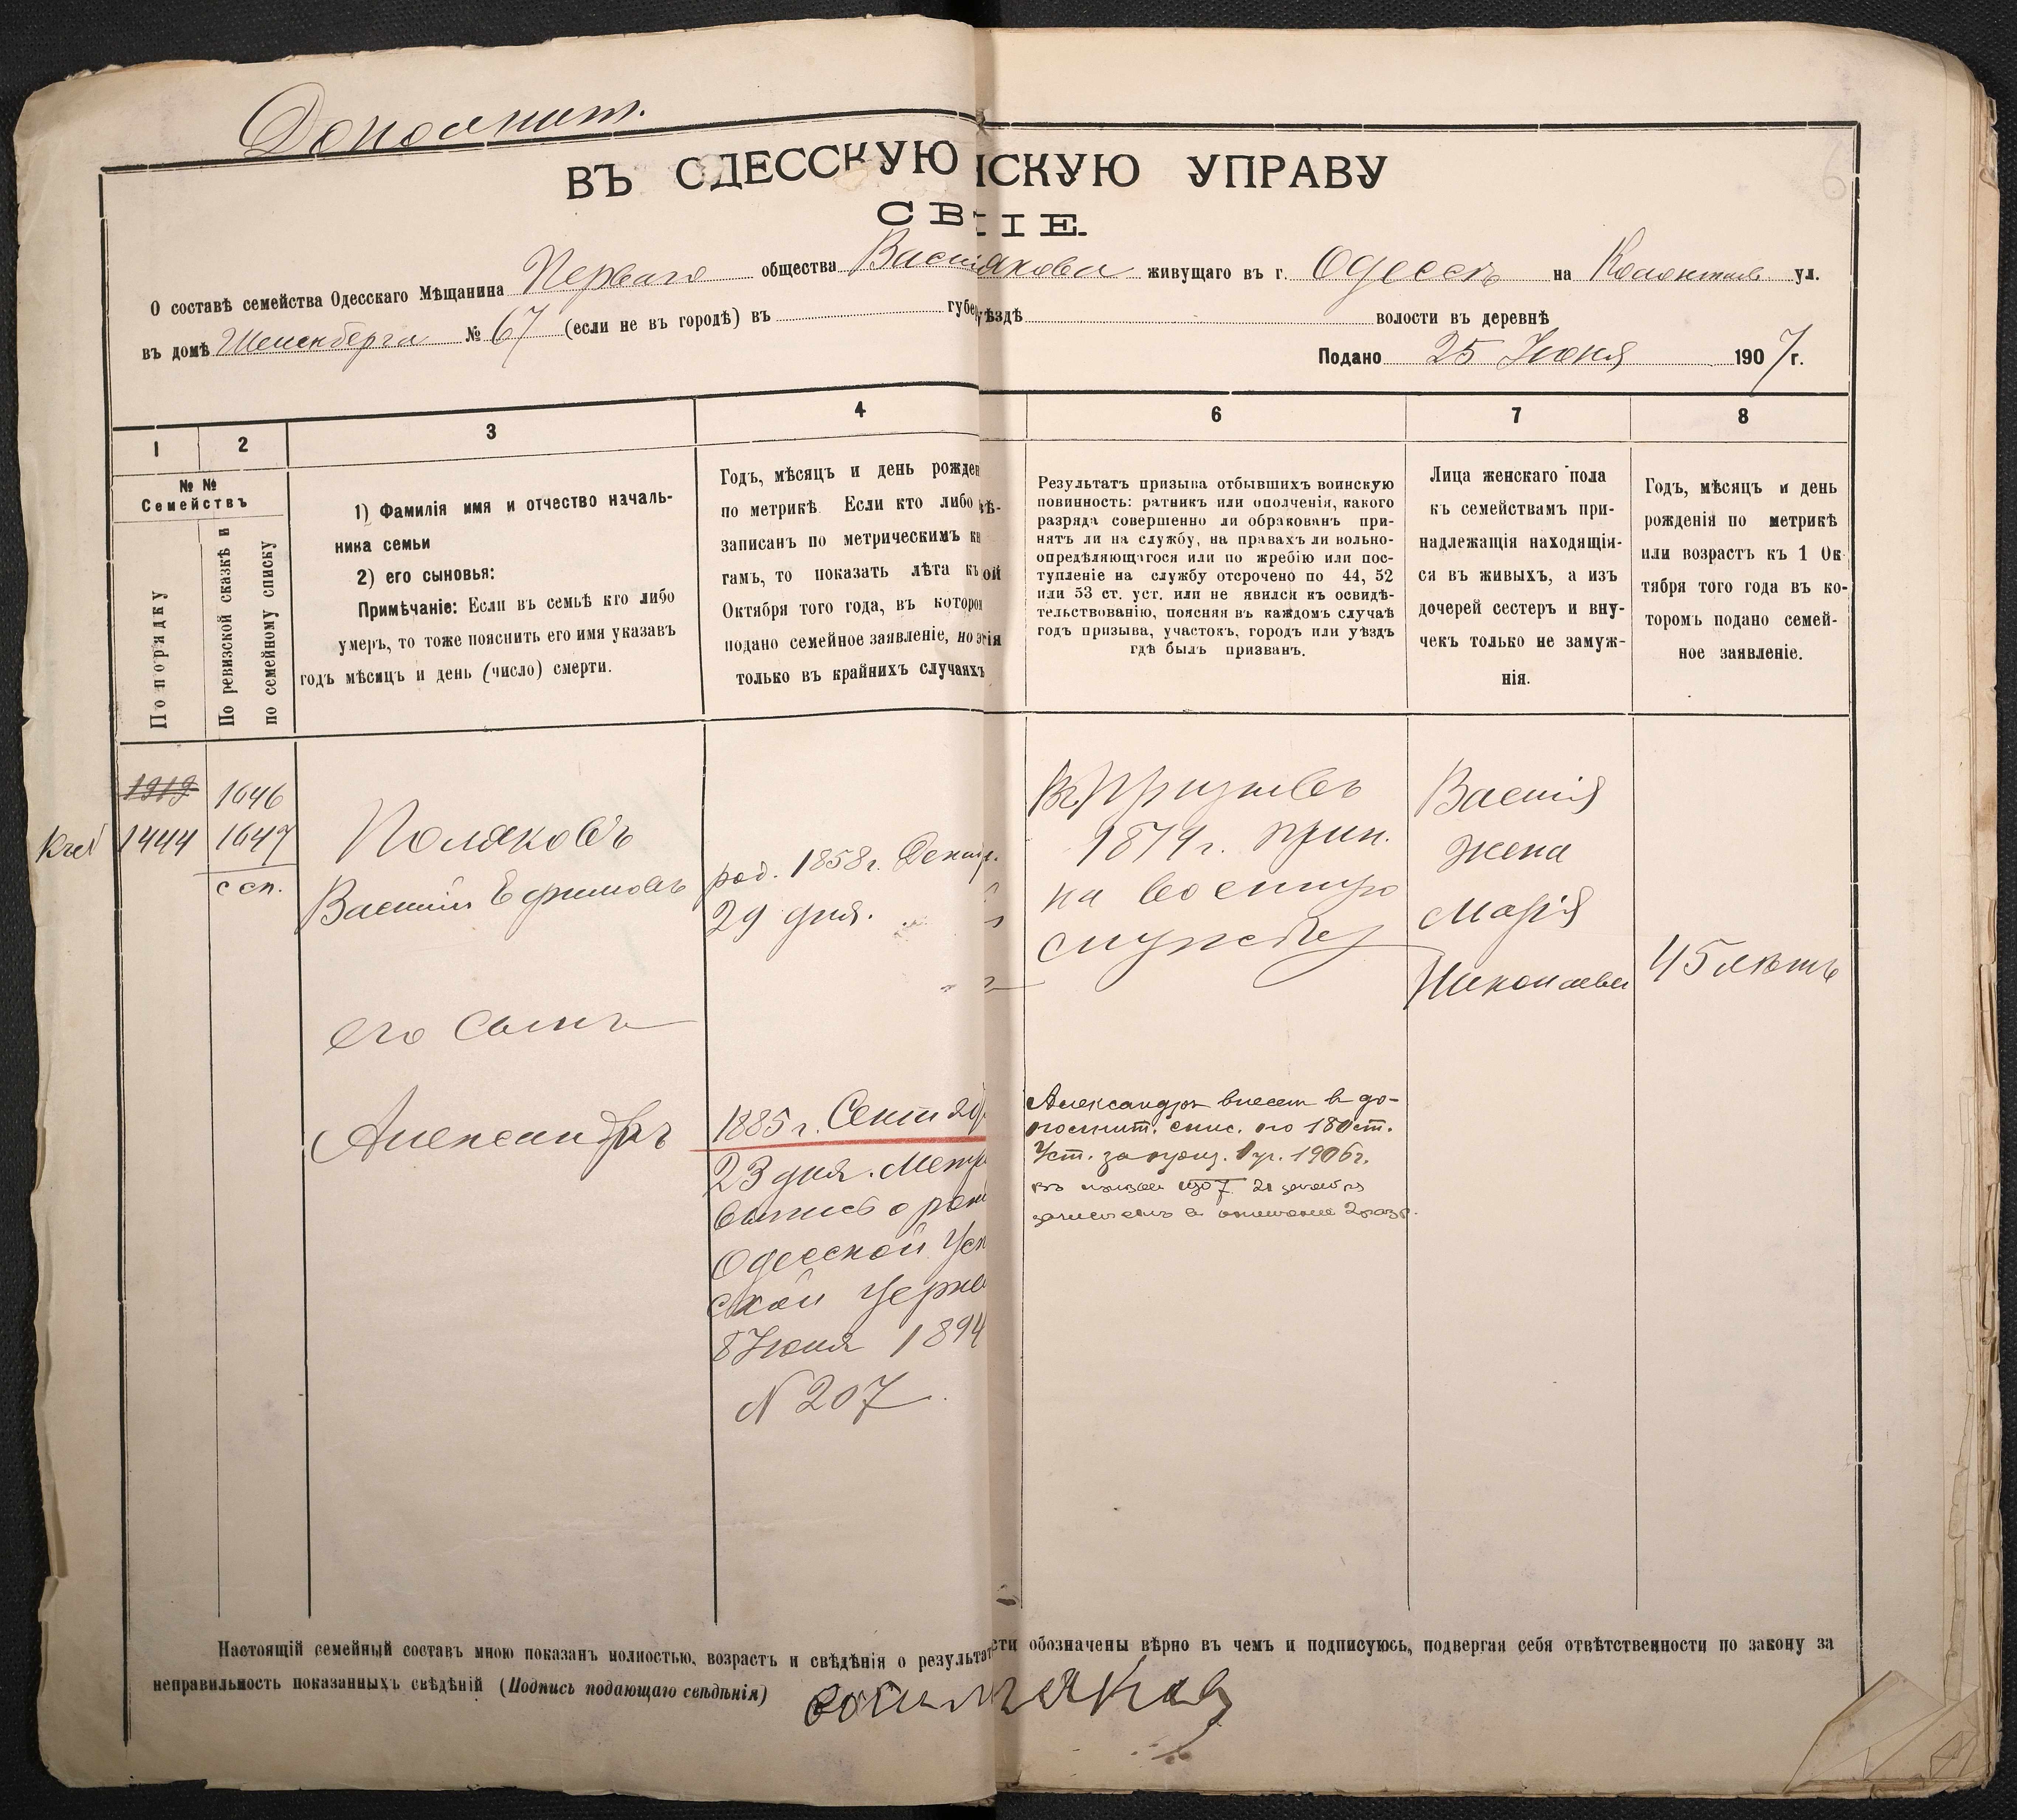 Дополнит.
ВЪ ОДЕССКУЮ
НСКУЮ УПРАВУ
СВ
НІЕ.
О составѣ семейства Одесскаго Мѣщанина Перваго общества Васи
якова живущаго въ г. Одессѣ на ул.
въ домѣ № 67 (если не въ городѣ) въ губе
уѣздѣ волости въ деревнѣ
Подано 25 Июня 1907 г.
1
2
3
4
6
7
8
№ №
Семействъ
По порядку
По ревизской сказкѣ и
по семейному списку
1) Фамилія имя и отчество началь-
ника семьи
2) его сыновья:
Примѣчаніе: Если въ семьѣ кто либо
умеръ, то тоже пояснить его имя указавъ
годъ мѣсяцъ и день (число) смерти.
Годъ, мѣсяцъ и день рожден
по метрикѣ. Если кто либо
записанъ по метрическимъ кн
гамъ, то показать лѣта къ
Октября того года, въ которо
подано семейное заявленіе, но э
только въ крайнихъ случаяхъ
вѣ-
ой
гія
Результатъ призыва отбывшихъ воинскую
повинность: ратникъ или ополченія, какого
разряда совершенно ли обракованъ при-
нятъ ли на службу, на правахъ ли вольно-
опредѣляющагося или по жребію или пос-
тупленіе на службу отсрочено по 44, 52
или 53 ст. уст. или не явился къ освидѣ-
тельствованію, поясняя въ каждомъ случаѣ
годъ призыва, участокъ, городъ или уѣздъ
гдѣ былъ призванъ.
Лица женскаго пола
къ семействамъ при-
надлежащія находящія-
ся въ живыхъ, а изъ
дочерей сестеръ и вну-
чекъ только не замуж-
нія.
Годъ, мѣсяцъ и день
рожденія по метрикѣ
или возрастъ къ 1 Ок-
тября того года въ ко-
торомъ подано семей-
ное заявленіе.
1919 1646
1444 1647
с сп.
Поляковъ
Василій Ефимовъ
род. 1858 г. Декаб.
29 дня.
Въ Призывъ
1879 г. прин.
на военную
службу
Василія
жена
Марія
Николаева
45 лѣтъ
его сынъ
Александръ
1885 г. Сент
23 дня. Метр
выпись о рож
Одесской Усп
ской Церкв
8 Июня 1894
N 207
Александръ внесен в до-
полнит. спис. по 180 ст.
Уст. за призыв. 1906 г.
1907 21
зачисленъ в ополчение 2 разр.
Настоящій семейный составъ мною показанъ полностью, возрастъ и свѣдѣнія о результат
сти обозначены вѣрно въ чемъ и подписуюсь, подвергая себя отвѣтственности по закону за
неправильность показанныхъ свѣдѣній (Подпись подающаго свѣдѣнія)